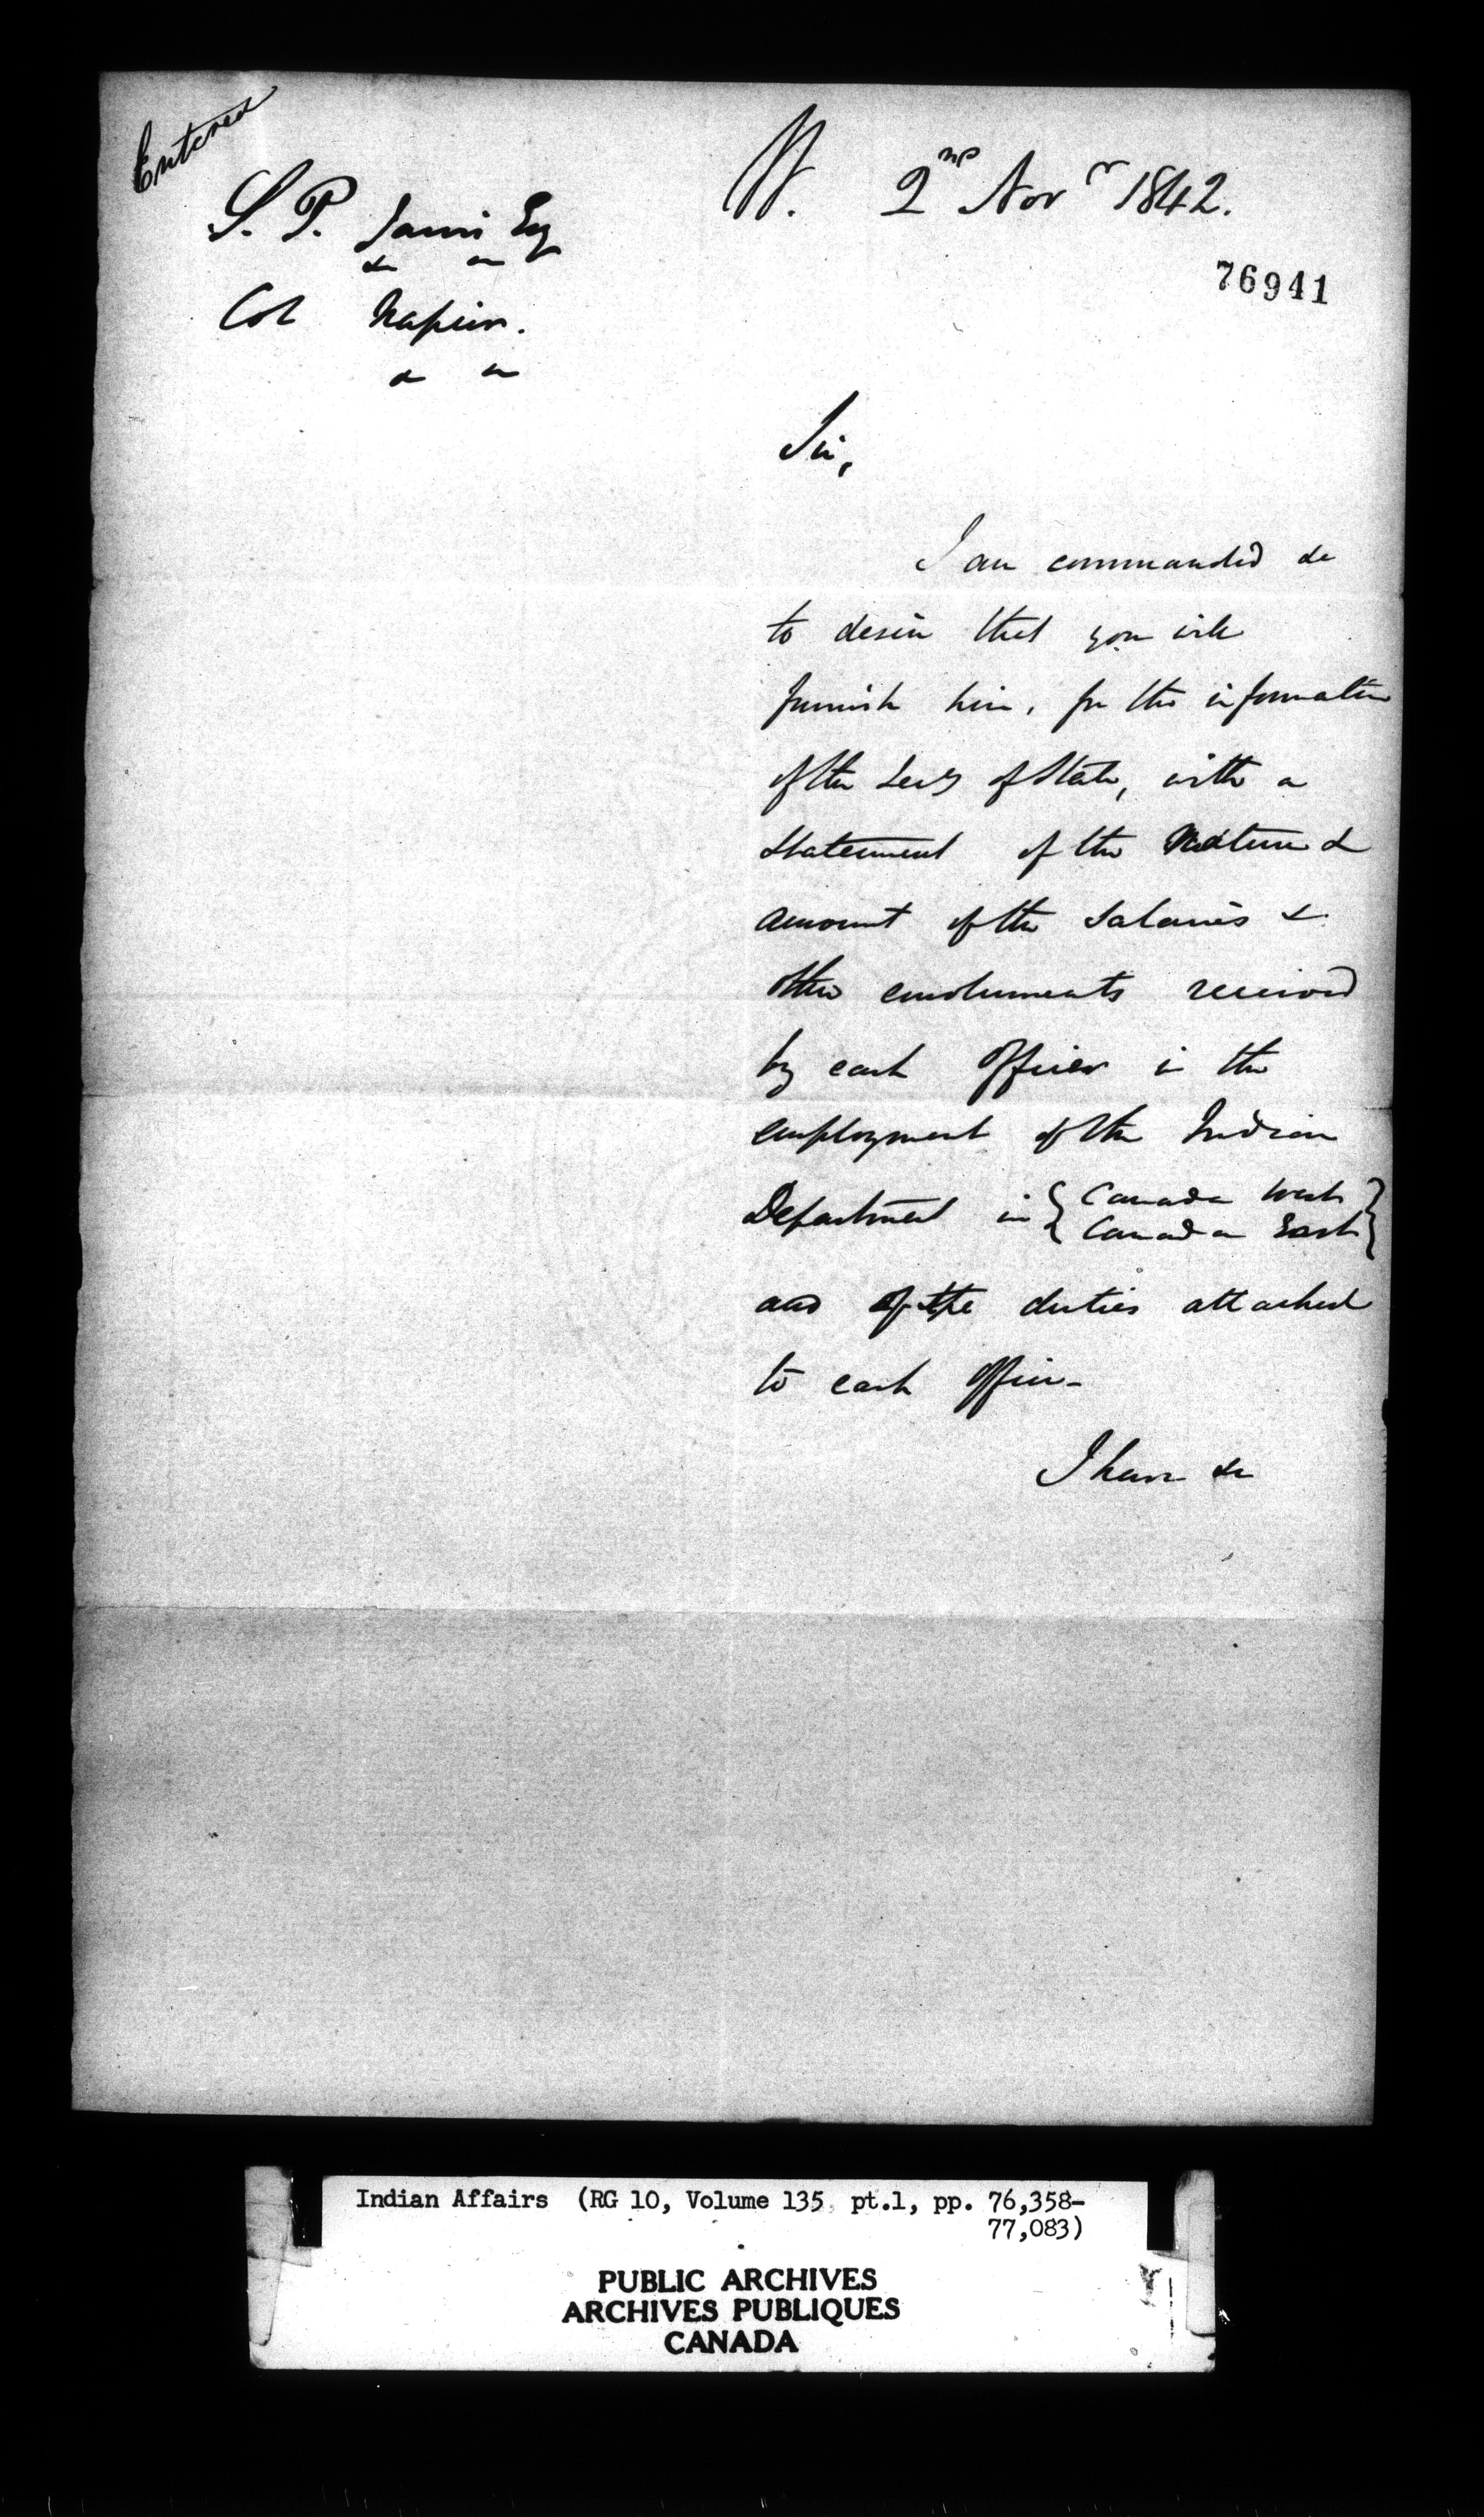 Entered
S. P. Jarvis Esq
&c &c
Col Napier.
& &c
2nd Novr 1842.
76941
Sir,
I am commanded &c
to desire that you will
furnish him, for the information
of the Secy of State, with a
statement of the Nature &
amount of the Salaries &
other emoluments received
by each Officer in the
employment of the Indian
Department in { Canada West }
{ Canada East }
and of the duties attached
to each office-
I have &c
Indian Affairs (RG 10, Volume 135 pt.1, pp. 76,358-
77,083)
PUBLIC ARCHIVES
ARCHIVES PUBLIQUES
CANADA